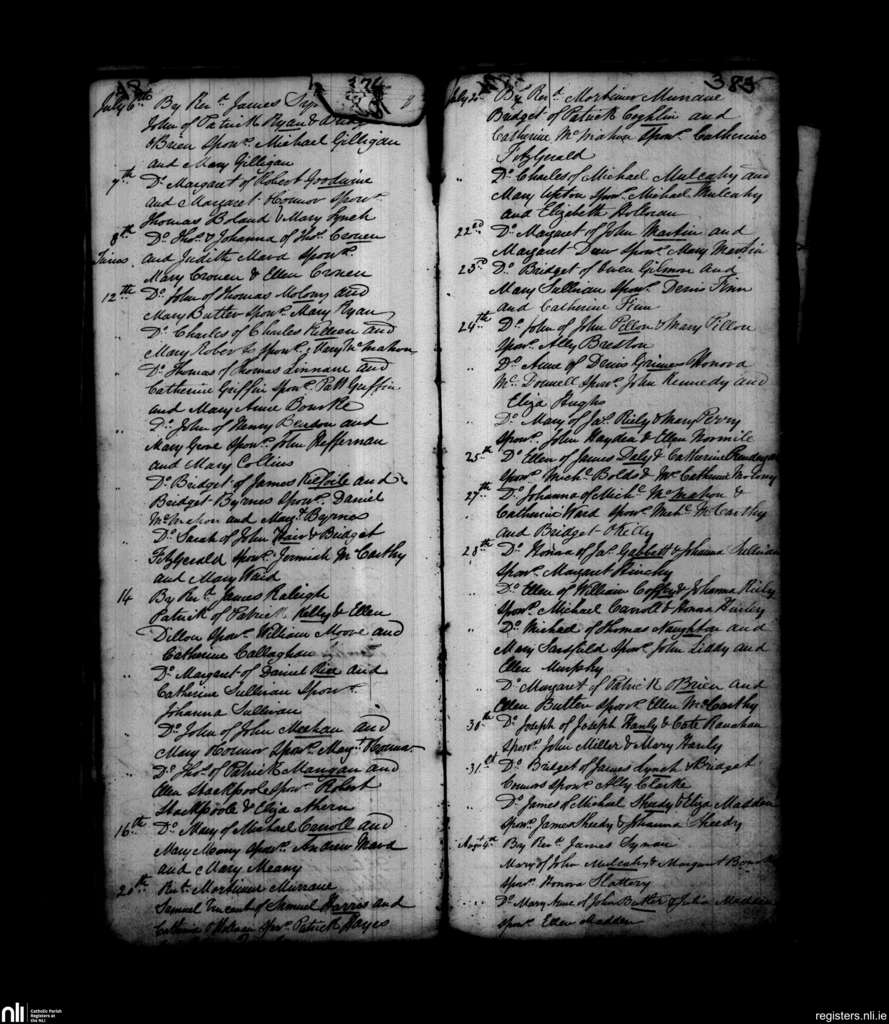 18
374
July 6th By Revd. James
John of Patrick Ryan &
OBrien Sponrs. Michael Gilligan
and Mary Gilligan
7th Do. Margaret of Robert Goodwine
and Margaret OConnor Sponrs.
Thomas Boland & Mary Lynch
8th Do. Thos. & Johanna of Thos. Cronen
Twins and Judith Mara Sponrs.
Mary Cronen & Ellen Cronen
12th Do. John of Thomas Molony and
Mary Butler Sponrs. Mary Ryan
" Do. Charles of Charles and
Mary Roberts Sponr. Mary McMahon
" Do. Thomas of Thomas Linnane and
Catherine Griffin Sponrs. Patt Griffin
and Mary Anne Bourke
" Do. John of Henry and
Mary Sponrs. John Heffernan
and Mary Collins
Do. Bridget of James and
Bridget Byrnes Sponrs. Daniel
McMahon and Margt. Byrnes
" Do. Sarah of John Hair & Bridget
FitzGerald Sponrs. Jermiah McCarthy
and Mary Ward
14 By Revd. James Raleigh
Patrick of Patrick Kelly & Ellen
Dillon Sponrs. William Moore and
Catherine Callaghan
" Do. Margaret of Daniel Rice and
Catherine Sullivan Sponr.
Johanna Sullivan
Do. John of John Meehan and
Mary OConnor Sponr. Margt. OConnor
" Do. Thos. of Patrick Mangan and
Ellen Stackpoole Sponrs. Robert
Stackpoole & Eliza Ahern
16th Do. Mary of Michael Carroll and
Mary Meany Sponrs. Andrew Mara
and Mary Meany
20th Revd. Mortimer Murnane
Samuel Vincent of Samuel Harris and
Catherine Sponr. Patrick Hayes
383
July 2 By Revd. Mortimer Murnane
Bridget of Patrick Coghlin and
Catherine McMahon Sponr. Catherine
FitzGerald
" Do. Charles of Michael Mulcahy and
Mary Upton Sponrs. Michael Mulcahy
and Elizabeth Holloran
22nd Do. Margaret of John Martin and
Margaret Daw Sponr. Mary Martin
23rd Do. Bridget of Owen Gilmon and
Mary Sullivan Sponrs. Denis Finn
and Catherine Finn
24th Do. John of John Pillon & Mary Pillon
Sponr. Ally Breslon
" Do. Anne of Denis Grimes Honora
McDonnell Sponrs. John Kennedy and
Eliza Hughs
" Do. Mary of Jas. Reily & Mary Perry
Sponrs. John Hayden & Ellen Normile
25th Do. Ellen of James Daly & Catherine
Sponrs. Michl. Boldo & Mc Catherine Molony
27th Do. Johanna of Michl. McMahon &
Catherine Ward Sponrs. Michl. McCarthy
and Bridget OKelly
28th Do. Honora of Jas. Gabbett & Johanna Sullivan
Sponr. Margaret Hinchy
" Do. Ellen of William Coffey & Johanna
Sponrs. Michael Carroll & Honora
" Do. Michael of Thomas Naughton and
Mary Sarsfield Sponrs. John Liddy and
Ellen Murphy
" Do. Margaret of Patrick OBrien and
Ellen Butler Sponr. Ellen McCarthy
30th Do. Joseph of Joseph Hanly & Cate Ranahan
Sponrs. John Miller & Mary Hanly
31st Do. Bridget of James Lynch & Bridget
Connors Sponr. Ally Clarke
" Do. James of Michael Sheedy & Eliza Madden
Sponrs. James Sheedy & Johanna Sheedy
Augt. 4th By Revd. James Synan
Mary of John Mulcahy & Margaret
Sponr. Honora Slattery
" Do. Mary Anne of John Butler & Julia Madden
Sponr. Ellen Madden
nli
Catholic Parish
Registers at
the NLI
registers.nli.ie